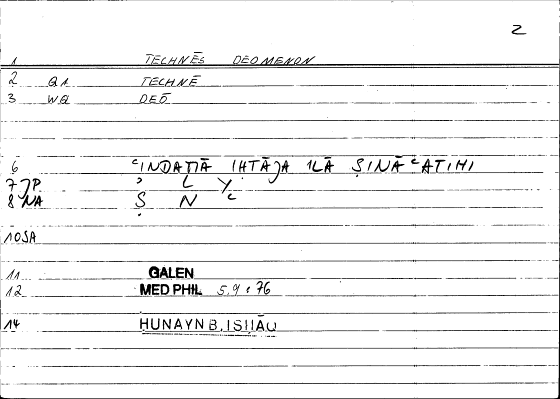 2
1 TECHNĒS DEOMENON
2 Q1 TECHNĒ
3 WQ DEŌ
6 ʿINDAMĀ IḤTĀJA ILĀ ṢINĀʿATIHI
7 JP ʾ L Y
8 NA Ṣ N ʿ
10 SA
11 GALEN
12 MED PHIL 5,9 : 76
14 HUNAYN B. ISḤĀQ